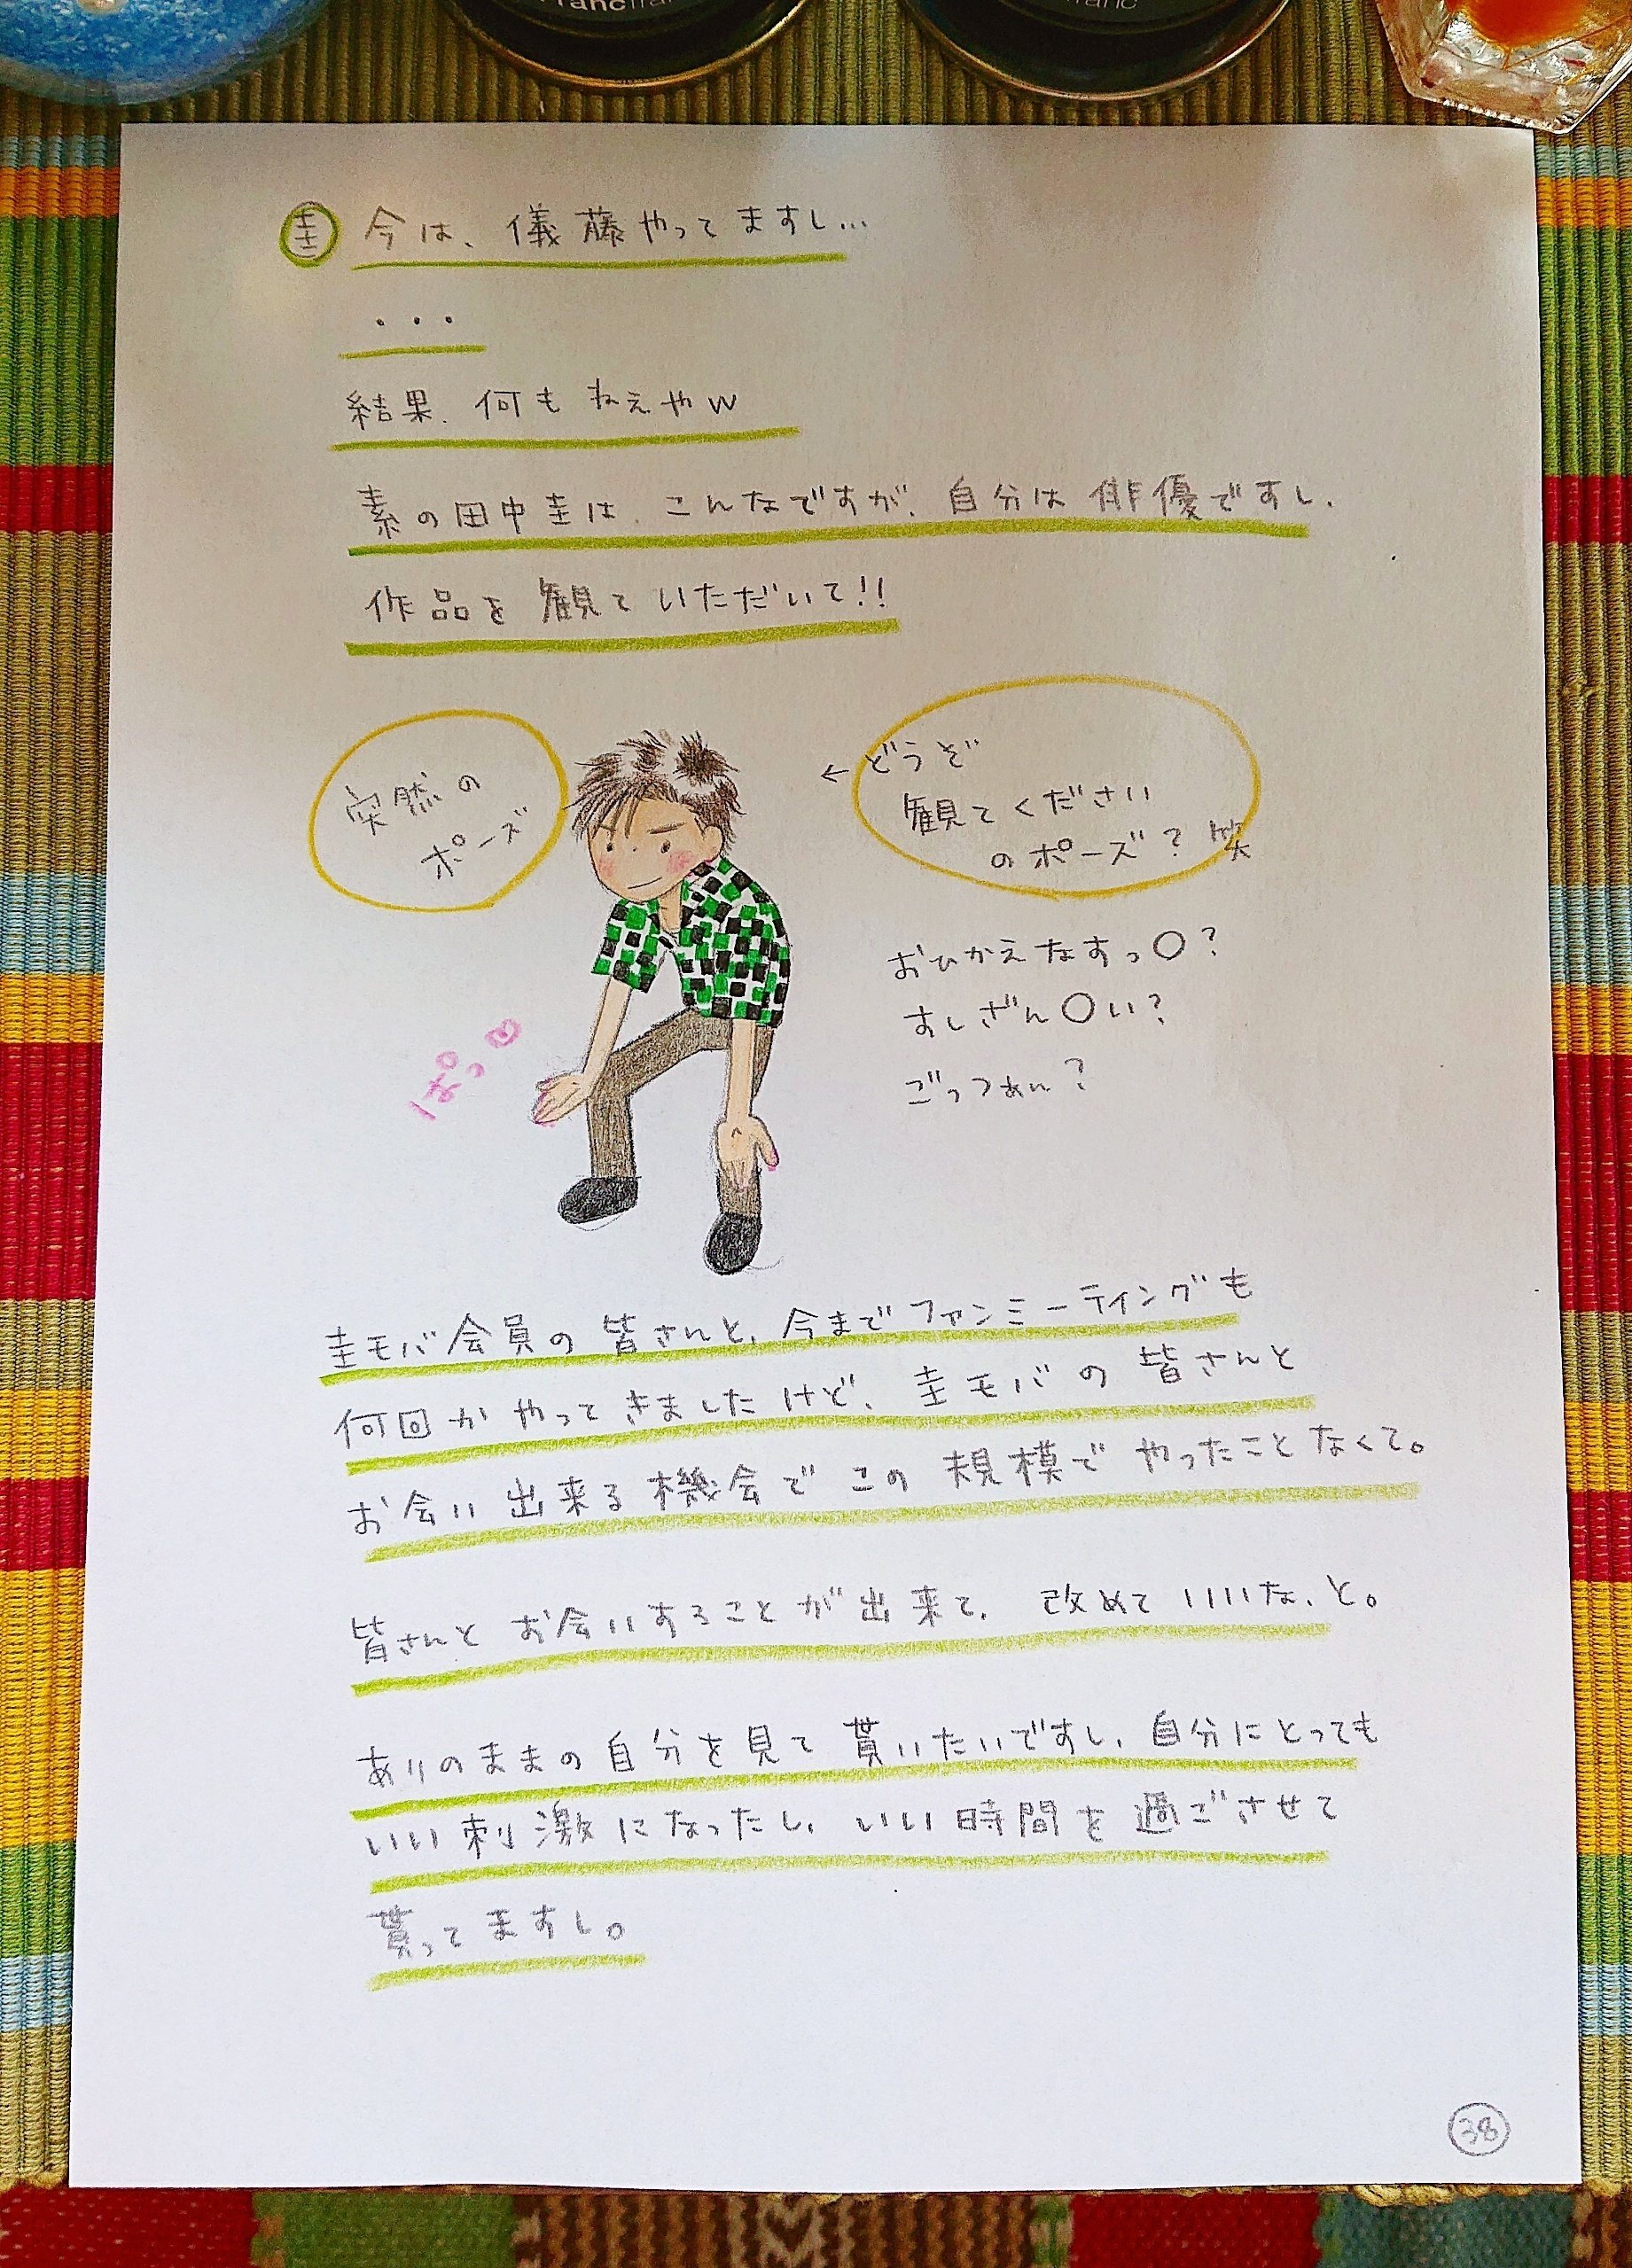 francfranc
franc
圭 今は、儀藤やってますし…
・・・
結果、何もねえやw
素の田中圭は、こんなですが、自分は俳優ですし、
作品を観ていただいて!!
突然の
ポーズ
←どうぞ
観てください
のポーズ?笑
おひかえなすっ〇?
すしざん〇い?
ごっつぁん?
ぱっ
圭モバ会員の皆さんと、今までファンミーティングも
何回かやってきましたけど、圭モバの皆さんと
お会い出来る機会でこの規模でやったことなくて。
皆さんとお会いすることが出来て、改めていいな、と。
ありのままの自分を見て貰いたいですし、自分にとっても
いい刺激になったし、いい時間を過ごさせて
貰ってますし。
38